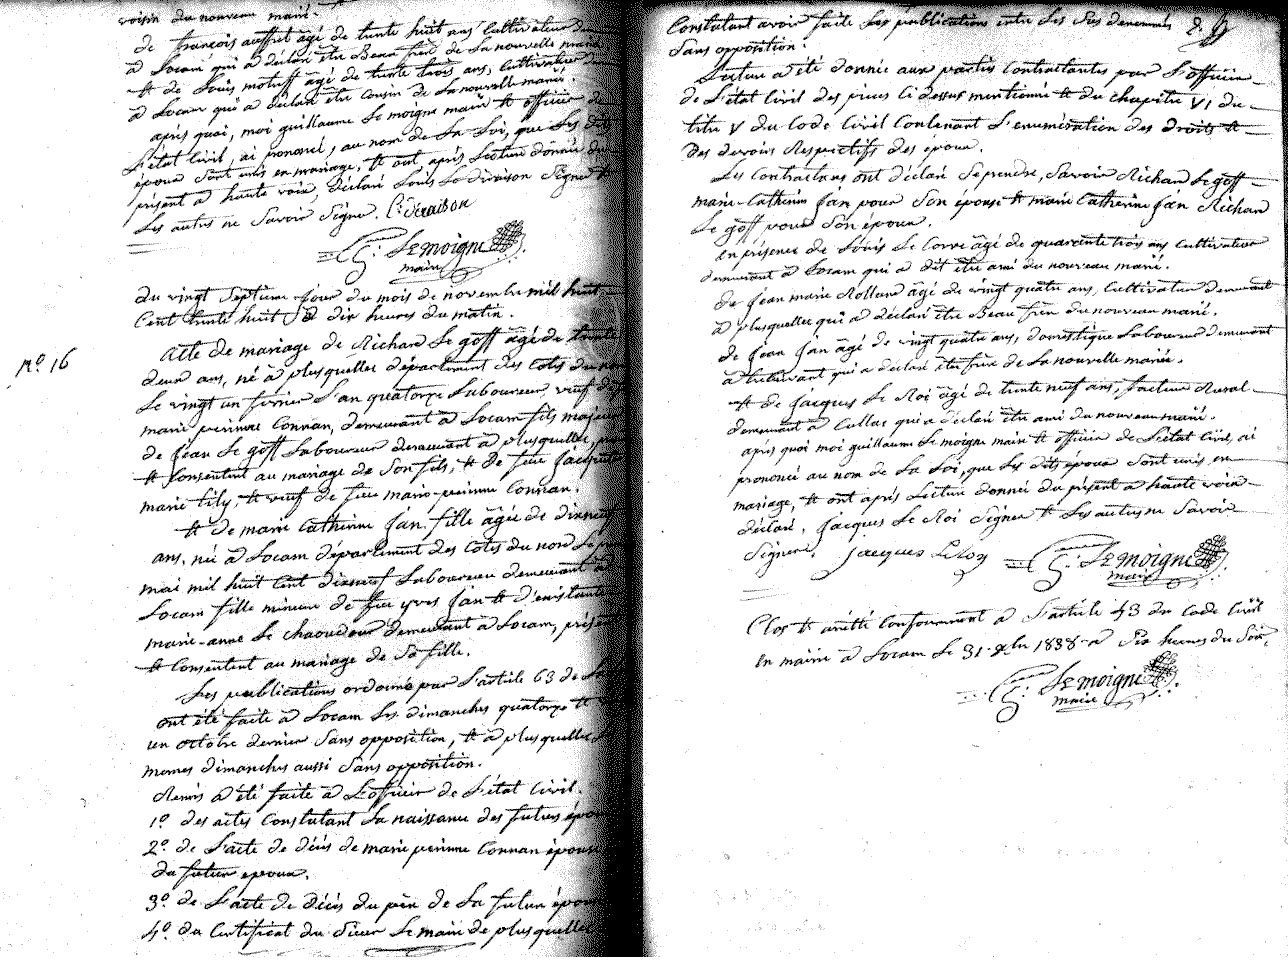 voisin du nouveau marié.
de françois auffret âgé de trente huit ans Cultivateur
à Locarn qui a déclaré être Beau frère de la nouvelle mariée
et de Louis motiff âgé de trente trois ans, Cultivateur
à Locarn qui a déclaré être Cousin de la nouvelle mariée.
après quoi, moi guillaume Le moigne maire et officier de
l'état Civil, ai prononcé, au nom de La Loi, que Les dits
époux Sont unis en mariage, et ont après Lecture donnée du
présent à haute voix, déclaré Louis Le divaison Signer et
Les autres ne Savoir Signer. L: devaison
G: Le moigne
maire
du vingt Septieme Jour du mois de novembre mil huit
Cent trente huit à dix heures du matin.
N° 16
acte de mariage de Richard Le goff âgé de trente
deux ans, né à plusquellec département des Cotes du nord
Le vingt un fevrier L'an quatorze Laboureur, veuf de
marie perinne Connan, demeurant à Locarn fils majeur
de Jean Le goff Laboureur demeurant à plusquellec,
et Consentent au mariage de Son fils, et De feue Jacquette
marie Lily, et veuf de feue marie-perinne Connan.
et de marie Catherine Jan. fille âgée de dixneuf
ans, née à Locarn département des Cotes du nord Le
mai mil huit Cent dixneuf Laboureuse demeurant à
Locarn fille mineure de feu yves Jan et d'existante
marie-anne Le chaoudour demeurant à Locarn, présente
et Consentent au mariage de Sa fille.
Les publications ordonné par L'article 63 de
ont été faite à Locarn Les dimanches quatorze et
un octobre dernier Sans opposition, et à plusquellec
memes dimanches aussi Sans opposition.
Remis a été faite à L'officier de L'état Civil.
1° des actes Constatant La naissance des futurs époux
2° de L'acte de décès de marie perinne Connan épouse
du futur epoux.
3° de L'acte de décès du père de La future épouse
4° du Certificat du Sieur Le maire de plusquellec
Constatant avoir faite Les publications entre Les Sus denommés
Sans opposition.
Lecture a été donnée aux partis Contractantes par L'officier
de L'état Civil des pieces Ci dessus mentionné et du chapitre VI du
titre V du Code Civil Contenant L'enumération des droits et
des devoirs Respectifs des époux.
Les Contractans ont déclaré Se prendre, Savoir Richard Le goff
marie-Catherine Jan pour Son épouse et marie Catherine Jan Richard
Le goff pour Son époux.
en présence de Louis Le Corre âgé de quarante trois ans Cultivateur
demeurant à Locarn qui a dit être ami du nouveau marié.
de Jean marie Rolland âgé de vingt quatre ans, Cultivateur demeurant
à plusquellec qui a déclaré être Beau frère du nouveau marié.
de Jean Jan âgé de vingt quatre ans, domestique Laboureur demeurant
à qui a déclaré être frère de La nouvelle mariée.
et de Jacques Le Roi âgé de trente neuf ans, facteur Rural
demeurant à Callac qui a déclaré être ami du nouveau marié.
après quoi moi guillaume Le moigne maire et officier de L'état Civil, ai
prononcé au nom de La Loi, que Les dits époux Sont unis en
mariage, et ont après Lecture donnée du présent à haute voix
déclaré, Jacques Le Roi Signer et Les autres ne Savoir
Signer. Jacques Leroy
G: Le moigne
maire
Clos et arrêté Conformement à L'article 43 du Code Civil
en mairie à Locarn Le 31 Xbre 1838 à Six heures du Soir.
G: Le moigne
maire